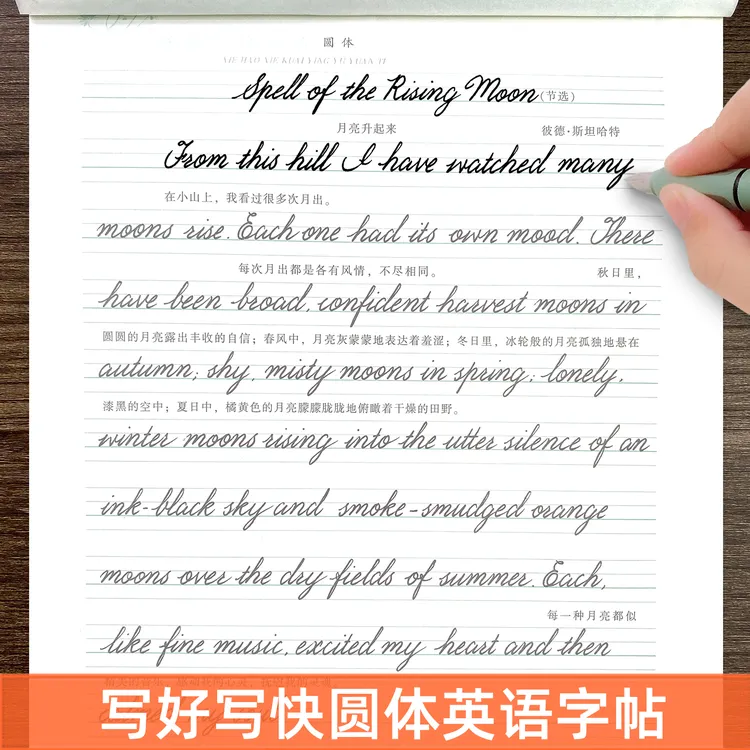 圆体
XIE HAO XIE KUAI YING YU YUAN TI
Spell of the Rising Moon(节选)
月亮升起来 彼德·斯坦哈特
From this hill I have watched many
在小山上，我看过很多次月出。
moons rise. Each one had its own mood. There
每次月出都是各有风情，不尽相同。 秋日里，
have been broad, confident harvest moons in
圆圆的月亮露出丰收的自信；春风中，月亮灰蒙蒙地表达着羞涩；冬日里，冰轮般的月亮孤独地悬在
autumn; shy, misty moons in spring; lonely,
漆黑的空中；夏日中，橘黄色的月亮朦朦胧胧地俯瞰着干燥的田野。
winter moons rising into the utter silence of an
ink-black sky and smoke-smudged orange
moons over the dry fields of summer. Each,
每一种月亮都似
like fine music, excited my heart and then
写好写快圆体英语字帖